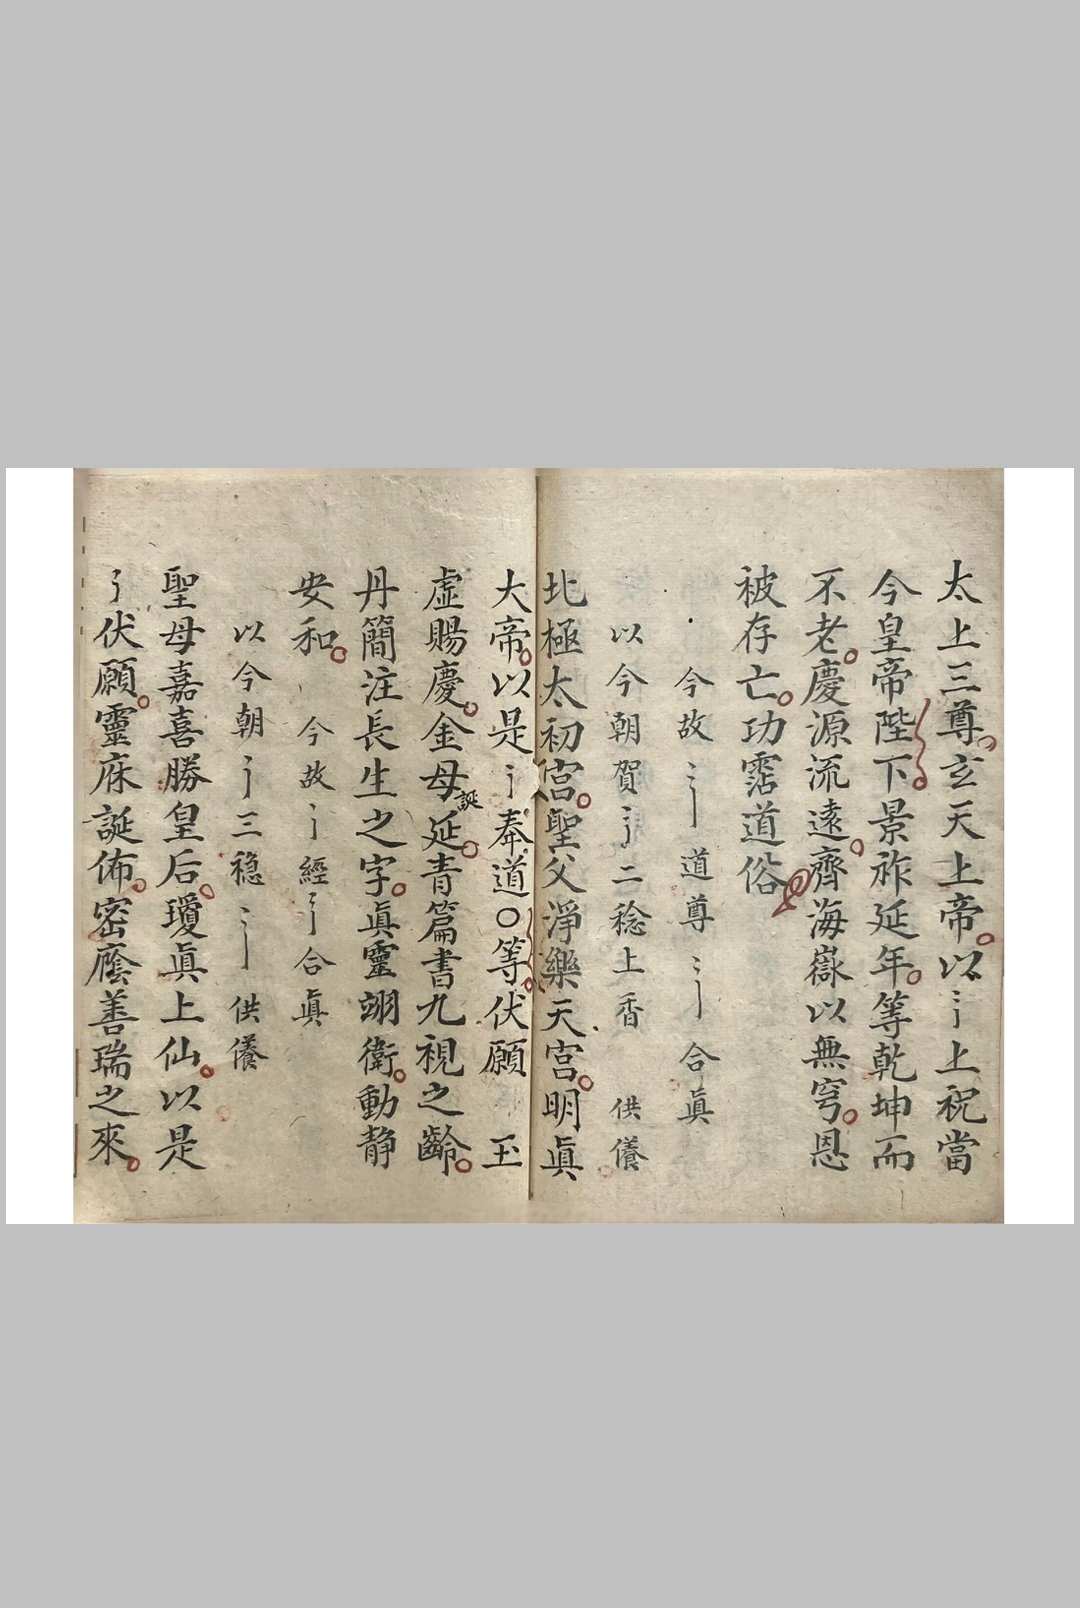 太上三尊玄天上帝以〻上祝當
今皇帝陛下景祚延年等乾坤而
不老慶源流遠齊海嶽以無穹恩
被存亡功霑道俗
今故〻道尊〻合眞
以今朝賀〻二稔上香 供養
北極太初宮聖父淨樂天宮明眞
大帝以是〻奉道〇等伏願 玉
虛賜慶金母誕延青篇書九視之齡
丹簡注長生之字眞靈翊衛動静
安和 今故〻經〻合眞
以今朝〻三稔〻供養
聖母嘉喜勝皇后瓊眞上仙以是
〻伏願靈庥誕佈密廕善瑞之來